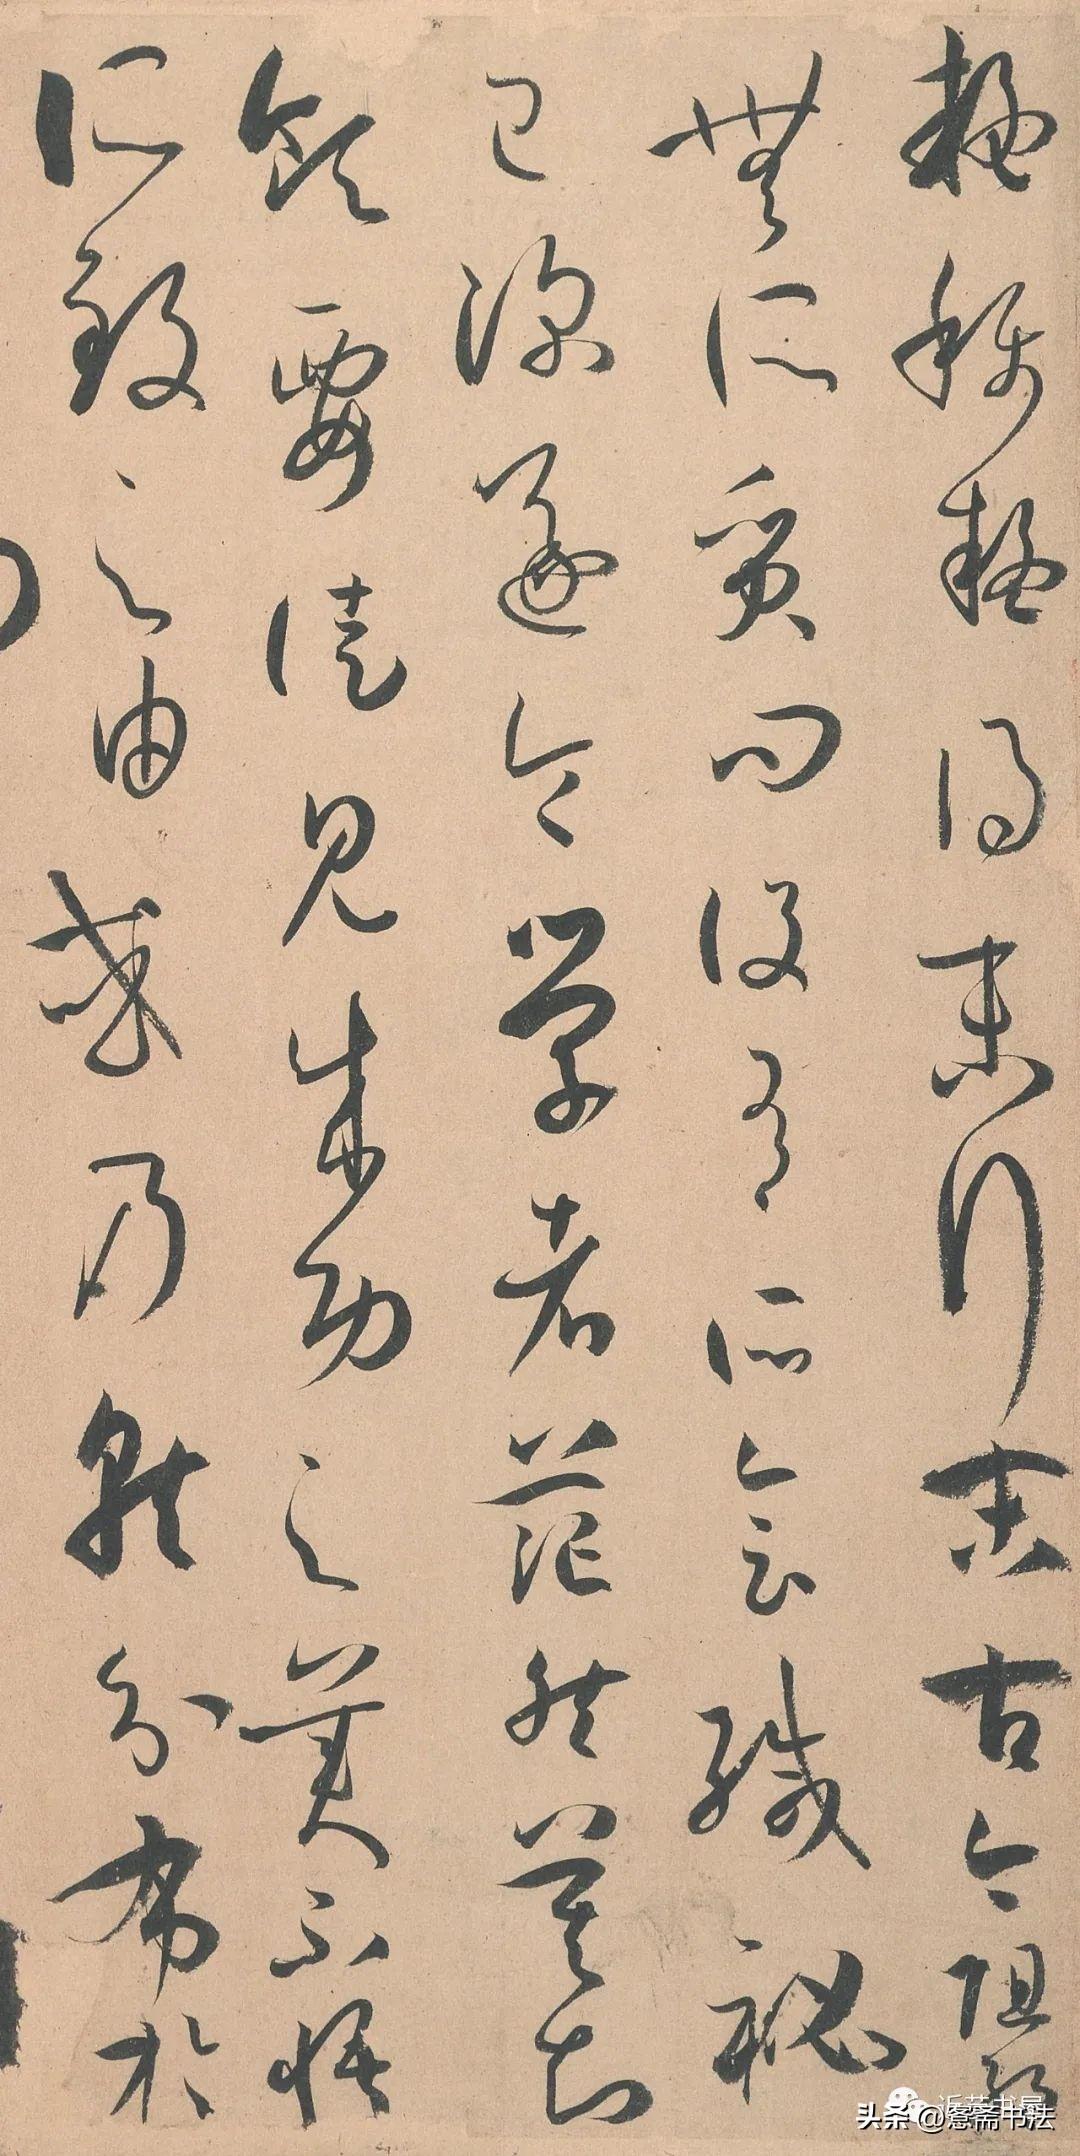 疑稱疑得末行末古今阻絕
無所質問設有所會緘秘
已深遂令學者茫然莫知
領要徒見成功之美不悟
所致之由或乃就分布於
头条 @悫斋书法